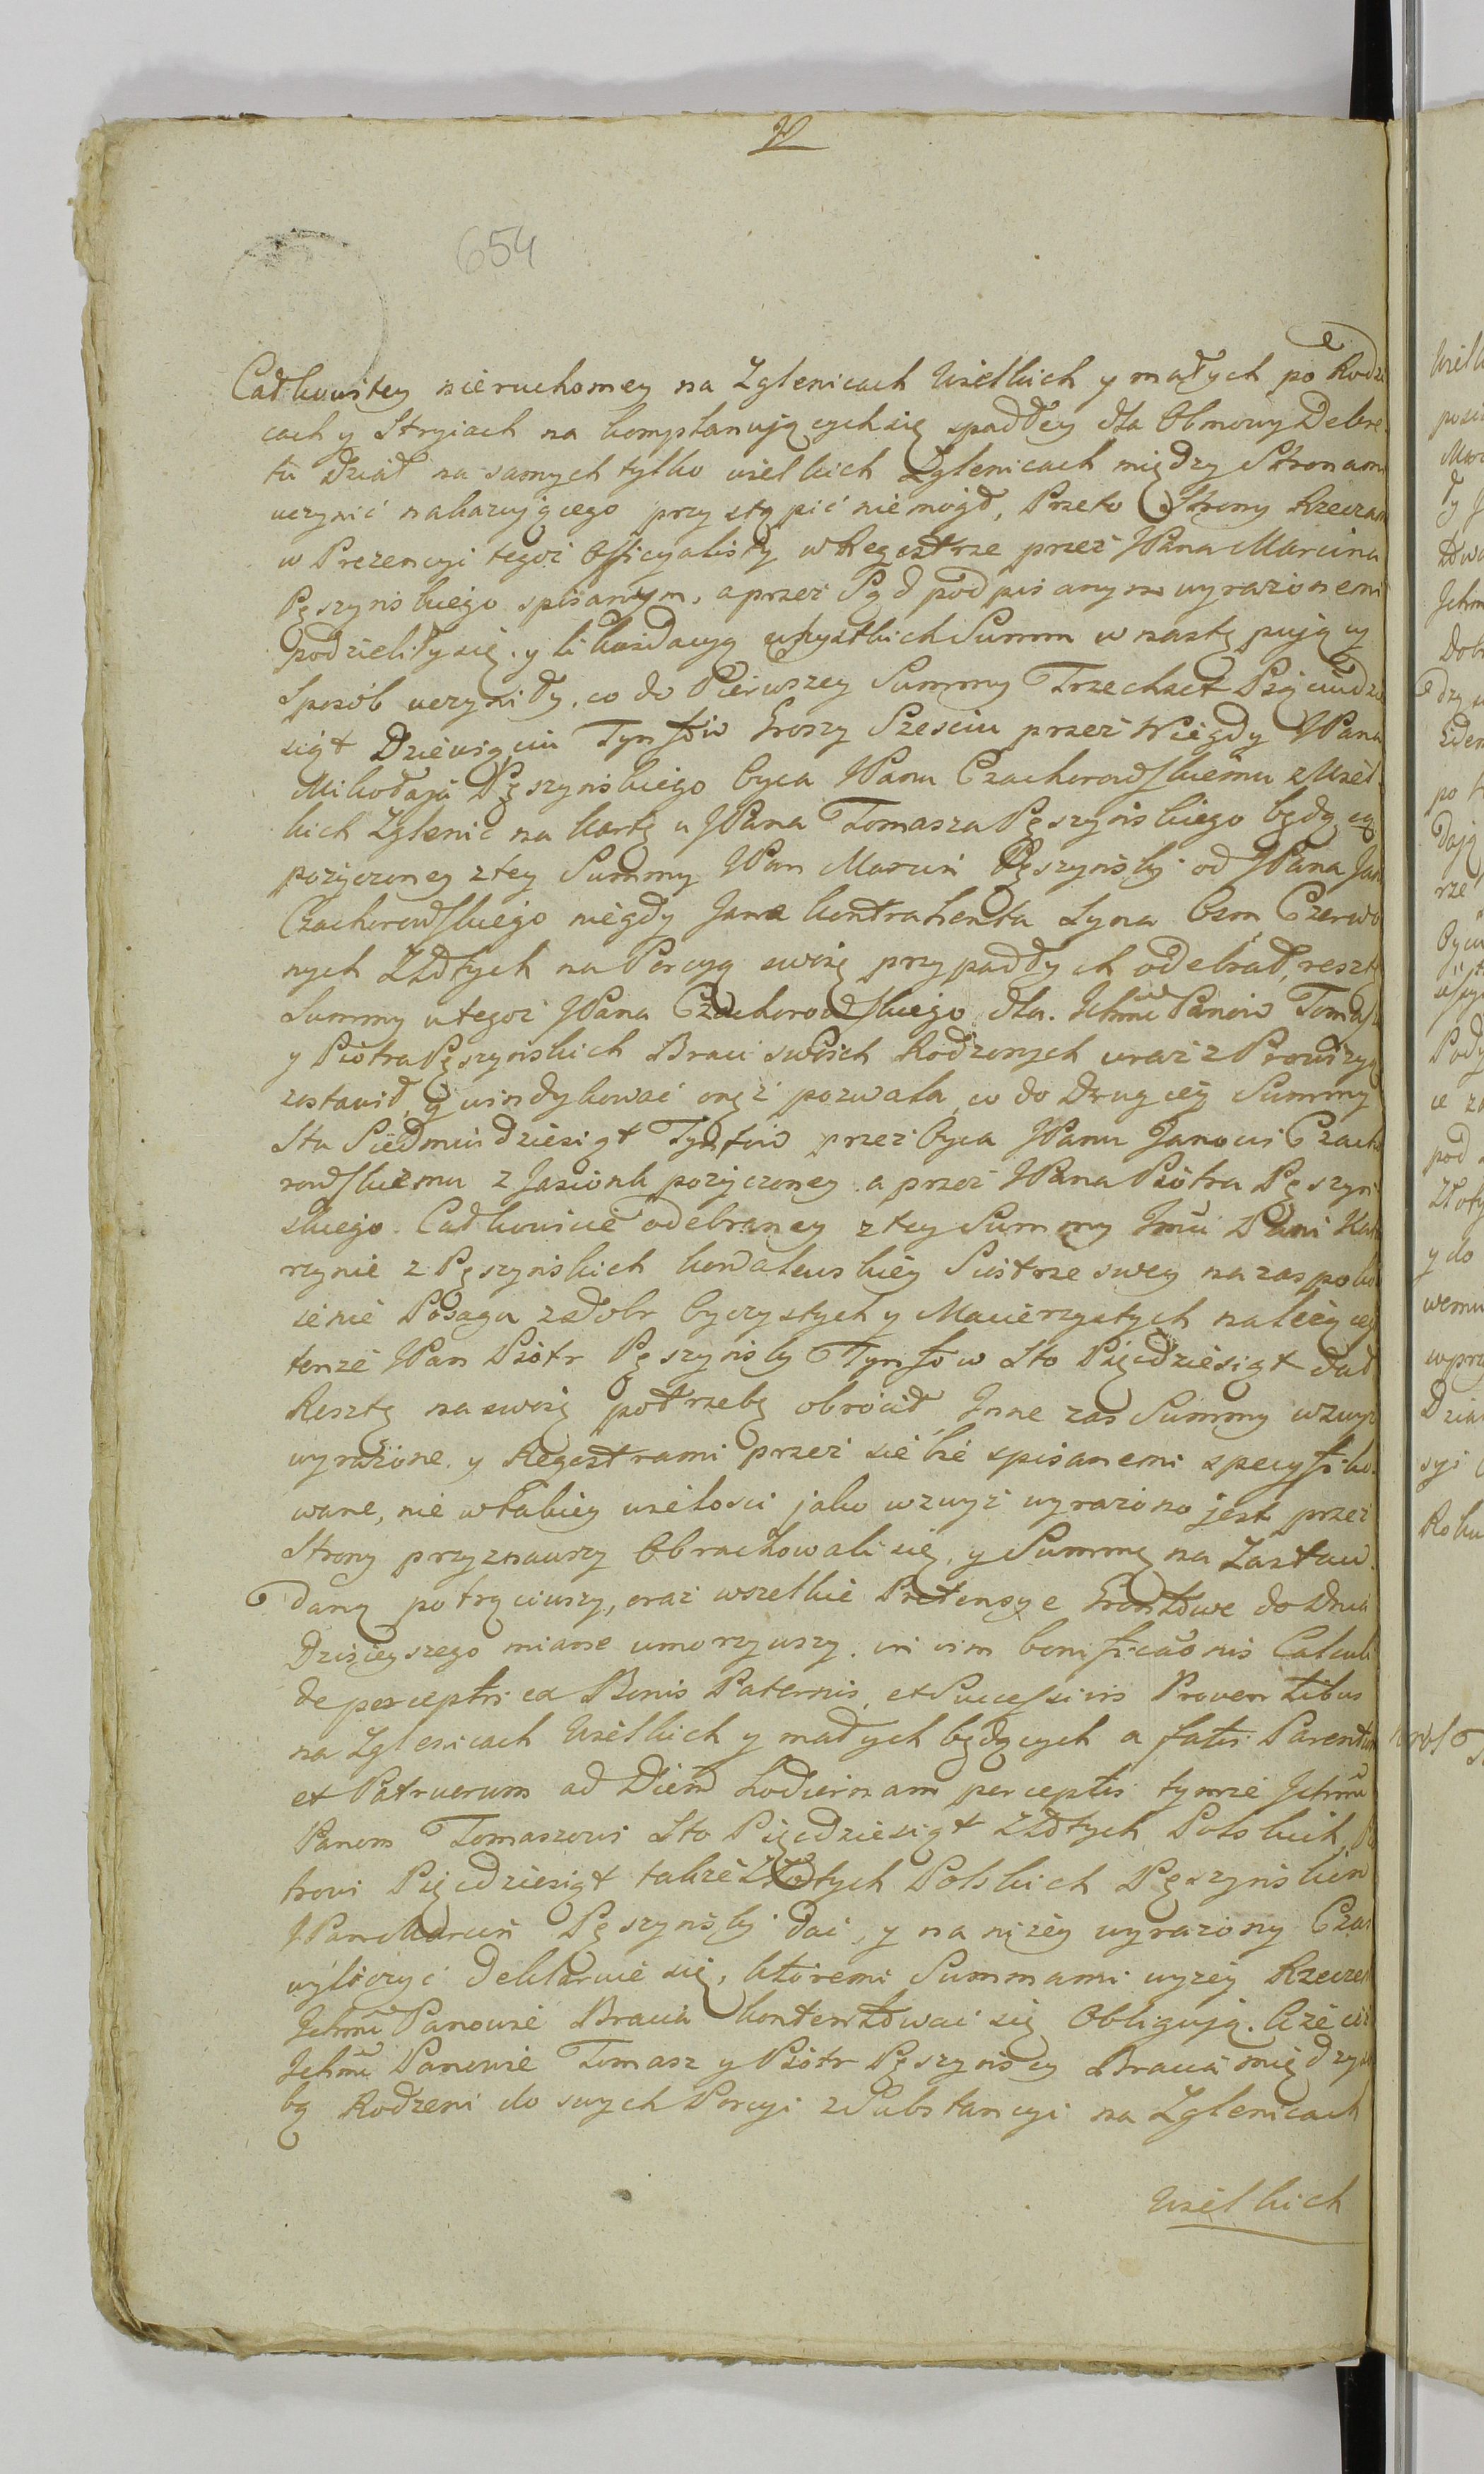 654
Całkowitey nieruchomey na Zglenicach Wielkich y małych po Rodzi
cach y Stryiach na komplanuiących się spadłey dla Obmowy Dekre
tu dział na samych tylko wielkich Zglenicach między Stronam
uczynić nakazuiącego przystąpić niemógł, Przeto Strony Rzeczon
w Prezencyi tegoż Officyalisty w Regestrze przez JPana Marcina
Pęszyńskiego spisanym, a przez Sąd podpisanym wyrażonemi
podzieliły się. y likwidacyą wszystkich Summ w nastę puiący
Sposób uczyniły. co do Pierwszey Summy Trzechset Pięciudzie
siąt Dziewięciu Tynfów Groszy Szesciu przez Niegdy JPana
Mikołaja Pęszyńskiego Oyca JPanu Czachorowskiemu z Wiel
kich Zglenic na kartę u JPana Tomasza Pęszyńskiego będącą
pożyczoney z tey Summy JPan Marcin Pęszyński od JPana Jan
Czachorowskiego niegdy Jana kontrahenta Syna Osm Czerwo
nych Złłotych na Porcyą swoię przypadłych odebrał, resztę
Summy u tegoż JPana Czachorowskiego dla. Ichmć Panów Tomasz
y Piotra Pęszyńskich Braci swoich Rodzonych wraz z Prowizyą
zostawił, y windykować onęż pozwala, co do Drugiey Summy
Stu Siedmiudziesiąt Tynfów przez Oyca JPanu Janowi Czacho
rowskiemu z Jasionk pożyczoney. a przez JPana Piotra Pęszyń
skiego. Całkowicie odebraney z tey Summy Jmć Pani Kata
rzynie z Pęszyńskich kowalewskiey Siostrze swey na zaspoko
ienie Posagu z dobr Oyczystych y Macierzystych należącey
tenże JPan Piotr Pęszyński Tynfów Sto Pięcdziesiąt dał
Resztę na swoię potrzebę obrócił, Inne zas Summy wzwyż
wyrażone. y Regestrami przez siebie spisanemi specyfiko
wane, nie w takiey wielości jako wzwyż wyrażono jest przez
Strony przyznawszy Obrachowali się, y Summę na Zastaw.
daną potrąciwszy, oraz wszelkie Pretensye Grontowe do Dnia
Dzisieyszego miane umorzywszy. in vim bonificaõnis Calculi
de perceptis ex Bonis Paternis, et Successivis Proventibus
na Zglenicach Wielkich y małych będących a fatis Parentum
et Patruerum ad Diem hodiernam perceptis tymże Ichmć
Panom Tomaszowi Sto Pięcdziesiąt Złłotych Polskich, Pio
trowi Pięcdziesiąt także Złłotych Polskich Pęszyńskim
JPan Marcin Pęszyński dać, y na niżey wyrażony Czas
wyliczyć deklaruie się, któremi Summami wyżey Rzeczen
Ichmć Panowie Bracia kontentować się Obligują. A że ciż
Ichmć Panowie Tomasz y Piotr Pęszyńscy Bracia między so
bą Rodzeni do swych Porcyi z Substancyi na Zglenicach
Wielkich